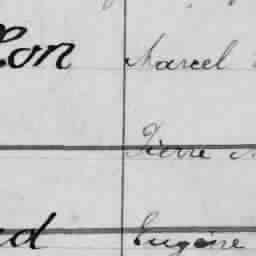 lon Marcel
Pierre
ed Eugène